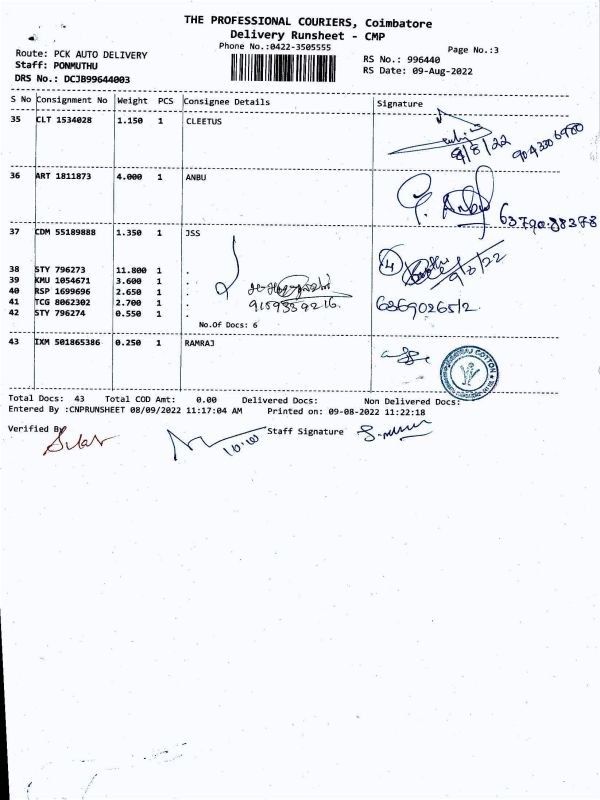 THE PROFESSIONAL COURIERS, Coimbatore
Delivery Runsheet - CMP
Phone No.:0422-3505555
Page No.:3
Route: PCK AUTO DELIVERY
Staff: PONMUTHU
DRS No.: DCJB99644003
RS No.: 996440
RS Date: 09-Aug-2022
S No Consignment No Weight PCS Consignee Details Signature
35 CLT 1534028 1.150 1 CLEETUS
36 ART 1811873 4.000 1 ANBU
Anbu
37 CDM 55189888 1.350 1 JSS
38 STY 796273 11.800 1 .
39 KMU 1054671 3.600 1 .
40 RSP 1699696 2.650 1 .
41 TCG 8062302 2.700 1 .
42 STY 796274 0.550 1 .
4
9159339216.
6369026512.
No.Of Docs: 6
43 IXM 501865386 0.250 1 RAMRAJ
COTTON
Total Docs: 43 Total COD Amt: 0.00 Delivered Docs: Non Delivered Docs:
Entered By :CNPRUNSHEET 08/09/2022 11:17:04 AM Printed on: 09-08-2022 11:22:18
Verified By
Staff Signature
10.10